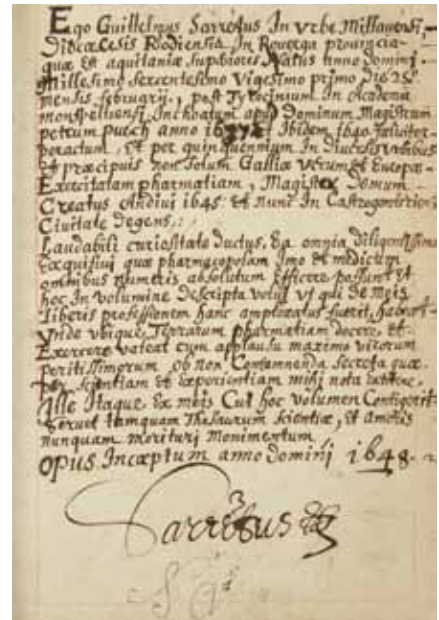 Ego Guillelmus Sarretus In vrbe Millavensi,
Diœcesis Rodiensis In Rouerga prouincia
quæ est aquitaniæ supœrioris Natus anno domini
Millesimo sexcentesimo Vigesimo primo die 25
mensis februarij, post Tyrocinium In academia
monspeliensi Inchoatum apud Dominum Magistrum
petrum puech anno Et Ibidem 1640 foeliciter
peractum, Et per quinquennium In diuersis vrbibus
et præcipuis non solum Galliæ verum et Europæ
Exercitatam pharmatiam, Magister Domum
Creatus Andiui 1645: et nunc In
Ciuitate degens,:
Laudabili curiositate ductus, Ea omnia diligentissime
Exquisiui quæ pharmacopolam Imo et medicum
omnibus numeris absolutum Efficere possunt Et
hoc In volumine Descripta volui vt qui de meis
liberis professionem hanc amplexatus fuerit, habeat
vnde vbique Terrarum pharmatiam docere, et
Exercere valeat cum applausu maximo virorum
peritissimorum ob non Contemnenda secreta quæ
per scientiam et Experientiam mihi nota
Ille Itaque Ex meis Cui hoc volumen Contigerit
seruet tamquam Thesaurum scientiæ, Et amoris
nunquam morituri Monimentum
opus Incæptum anno domini 1648.
Sarretus